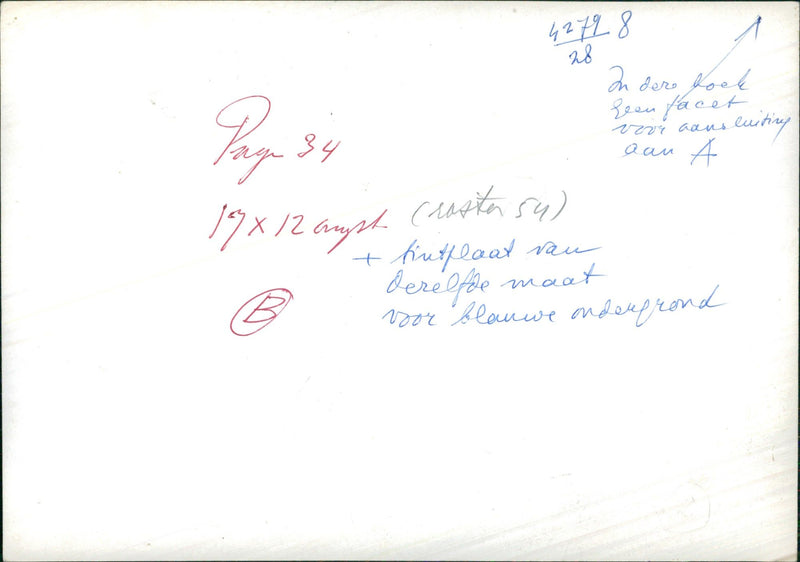 4279 8
28
In deze hoek
geen facet
voor aansluiting
aan A
Page 34
17 x 12 (raster 54)
+ tintplaat van
dezelfde maat
voor blauwe ondergrond
B